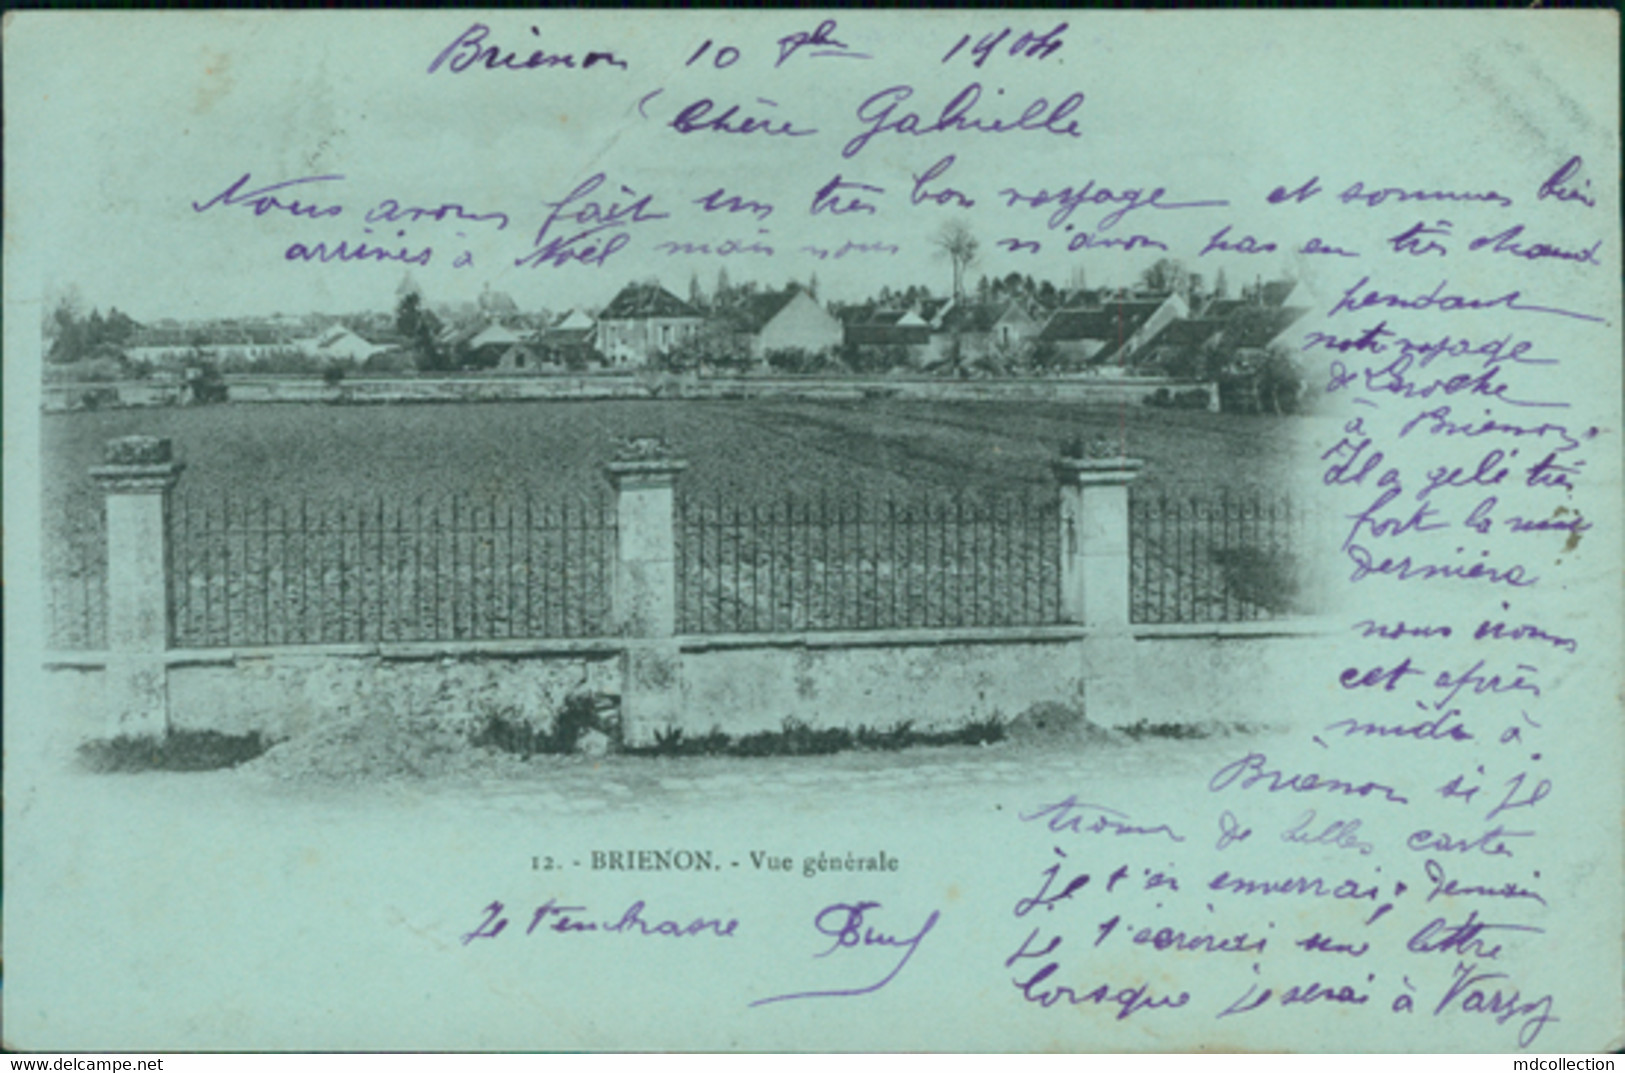 Brienon 10 1904
Chère Gabrielle
Nous avons fait un très bon voyage et sommes bien
arrivés à Noël mais nous n'avons pas eu très chaud
pendant
notre voyage
de Laroche
à Brienon.
Il a gelé très
fort la nuit
dernière
nous irons
cet après
midi à
Brienon si je
trouve de belles cartes
je t'en enverrai, demain
je t'écrirai une lettre
lorsque je serai à Varzy
12. - BRIENON. - Vue générale
Je t'embrasse
mdcollection